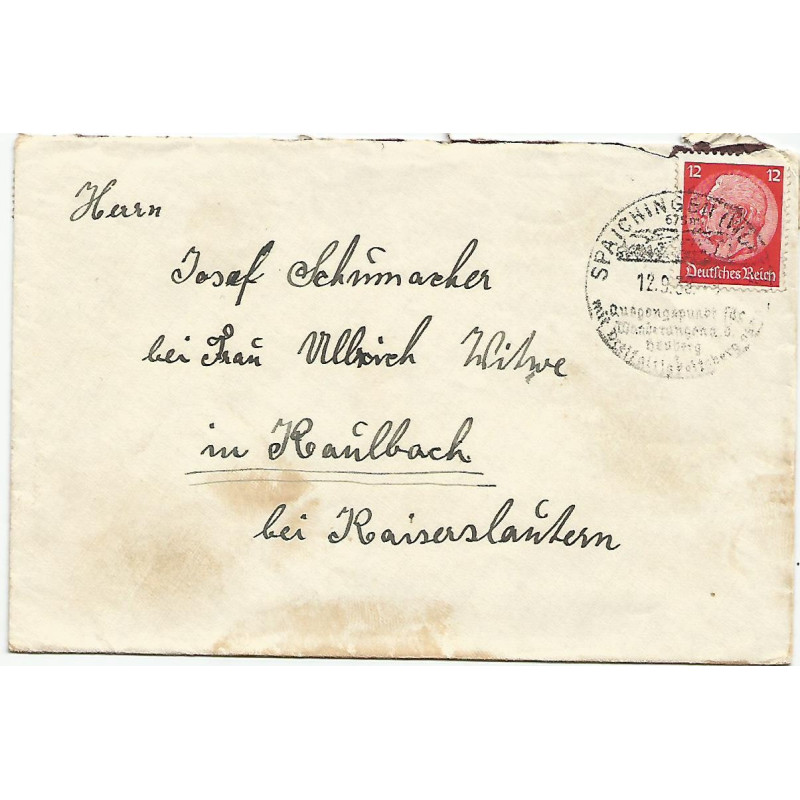 Herrn
Josef Schumacher
bei Frau Ullrich Witwe
in Kaulbach
bei Kaiserslautern
12 12
Deutsches Reich
SPAICHINGEN
12.9.38
Ausgangspunkt für
Wanderungen
Heuberg
mit Dreifaltigkeitsberg